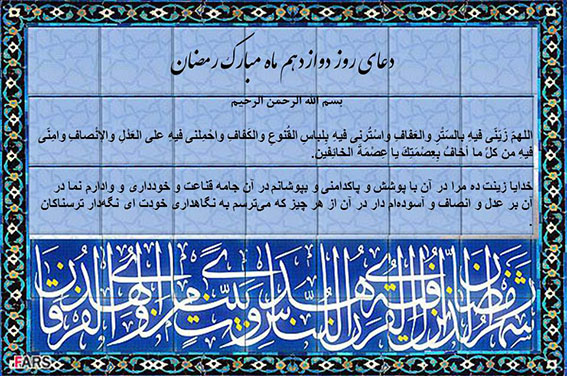 دعای روز دوازدهم ماه مبارک رمضان
بسم الله الرحمن الرحیم
اللهمّ زَیّنّی فیهِ بالسّتْرِ والعَفافِ واسْتُرنی فیهِ بِلِباسِ القُنوعِ والکَفافِ واحْمِلنی فیهِ علی العَدْلِ والإنْصافِ وامِنّی
فیهِ من کلّ ما أخافُ بِعِصْمَتِكَ یا عِصْمَةَ الخائِفینَ.
خدایا زینت ده مرا در آن با پوشش و پاکدامنی و بپوشانم در آن جامه قناعت و خودداری و وادارم نما در
آن بر عدل و انصاف و آسوده‌ام دار در آن از هر چیز که می‌ترسم به نگاهداری خودت ای نگه‌دار ترسناکان
.
شهر رمضان الذی انزل فیه القرآن هدی للناس و بینت من الهدی و الفرقان
FARS